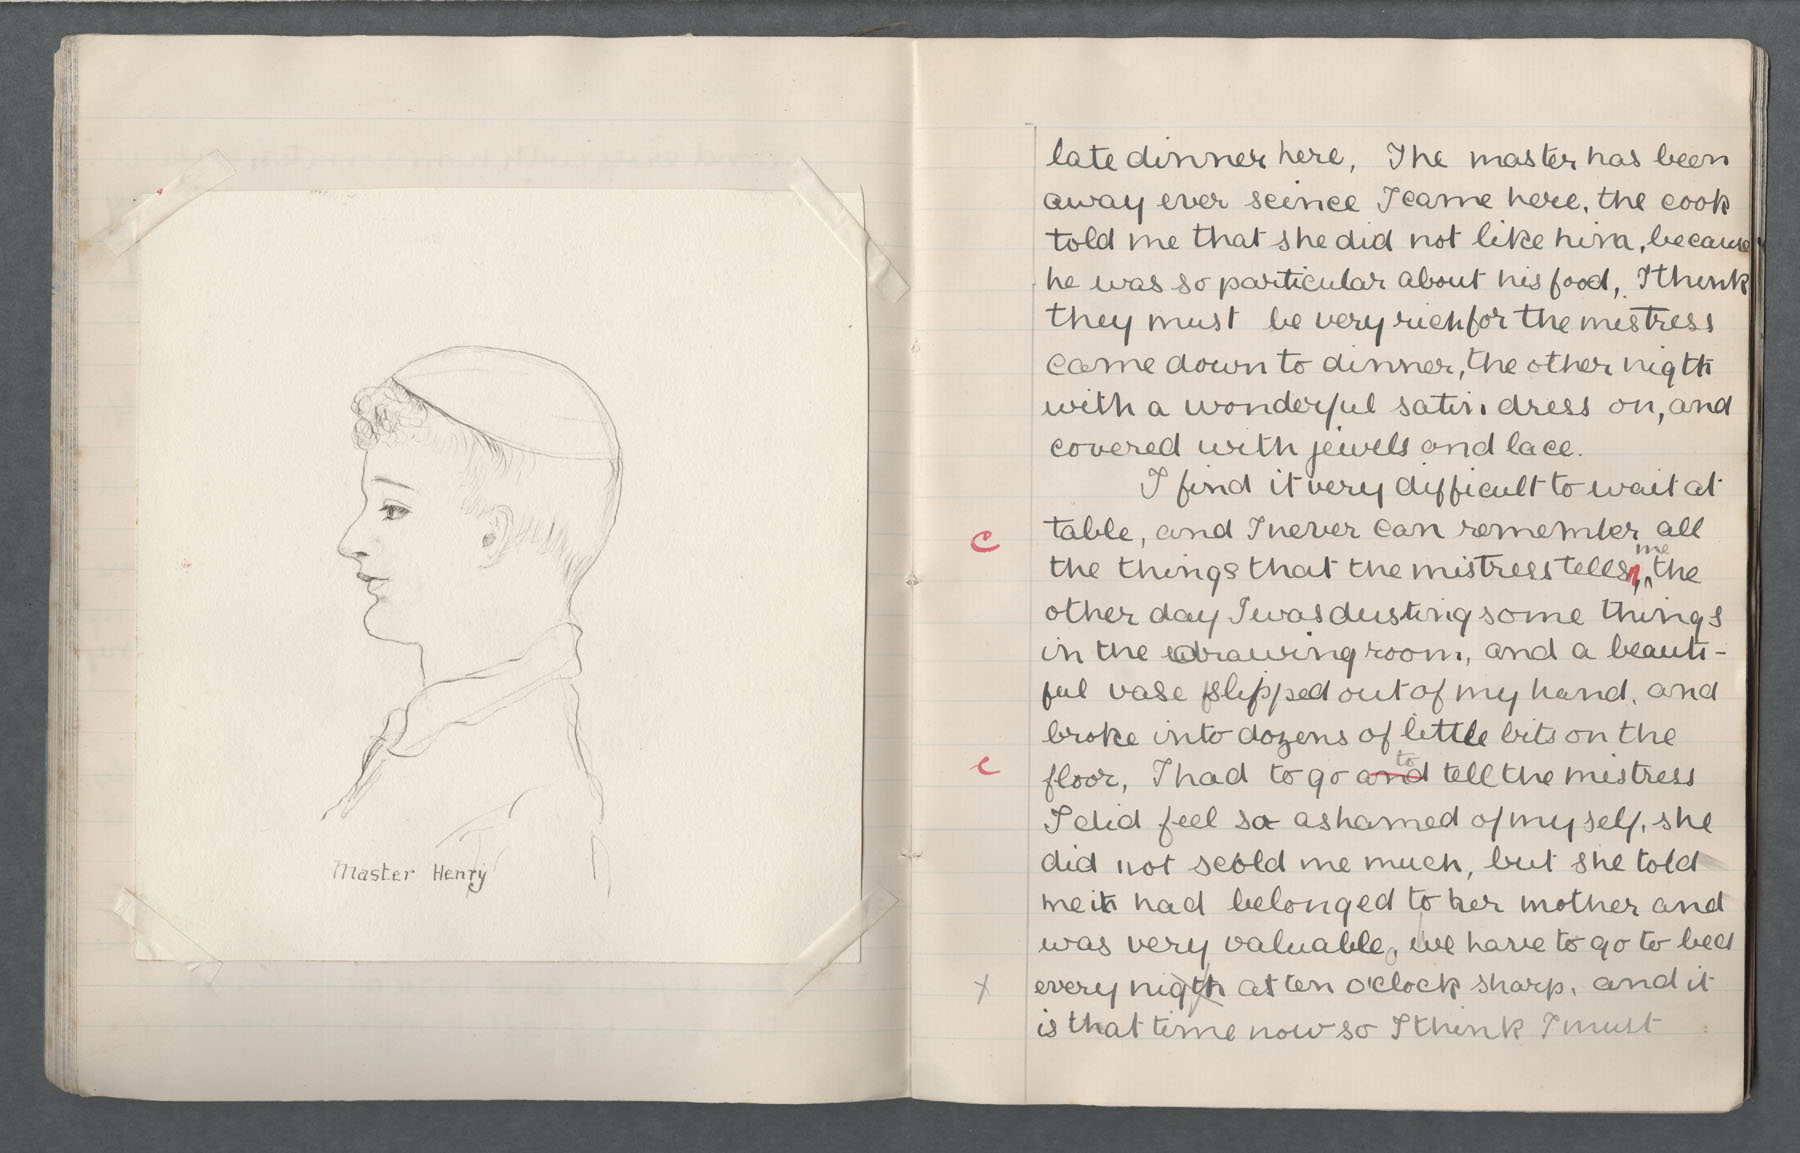 Master Henry
late dinner here, The master has been
away ever scince I came here, the cook
told me that she did not like him, because
he was so particular about his food, I think
they must be very rich for the mistress
came down to dinner, the other nigth
with a wonderful satin dress on, and
covered with jewels and lace.
I find it very difficult to wait at
table, and I never can remember all
c
me
the things that the mistress tells, the
other day I was dusting some things
in the drawing room, and a beauti-
ful vase slipped out of my hand, and
broke into dozens of little bits on the
to
c
floor, I had to go and tell the mistress
I did feel so ashamed of my self, she
did not scold me much, but she told
me it had belonged to her mother and
was very valuable, we have to go to bed
x
every nigth at ten o'clock sharp, and it
is that time now so I think I must